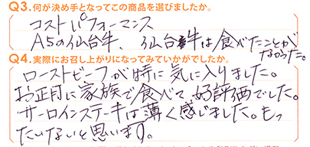 Q3.何が決め手となってこの商品を選びましたか。
コストパフォーマンス
A5の仙台牛、仙台牛は食べたことが
なかった。
Q4.実際にお召し上がりになってみていかがでしたか。
ローストビーフが特に気に入りました。
お正月に家族で食べて、好評価でした。
サーロインステーキは薄く感じました。もっ
たいないと思います。